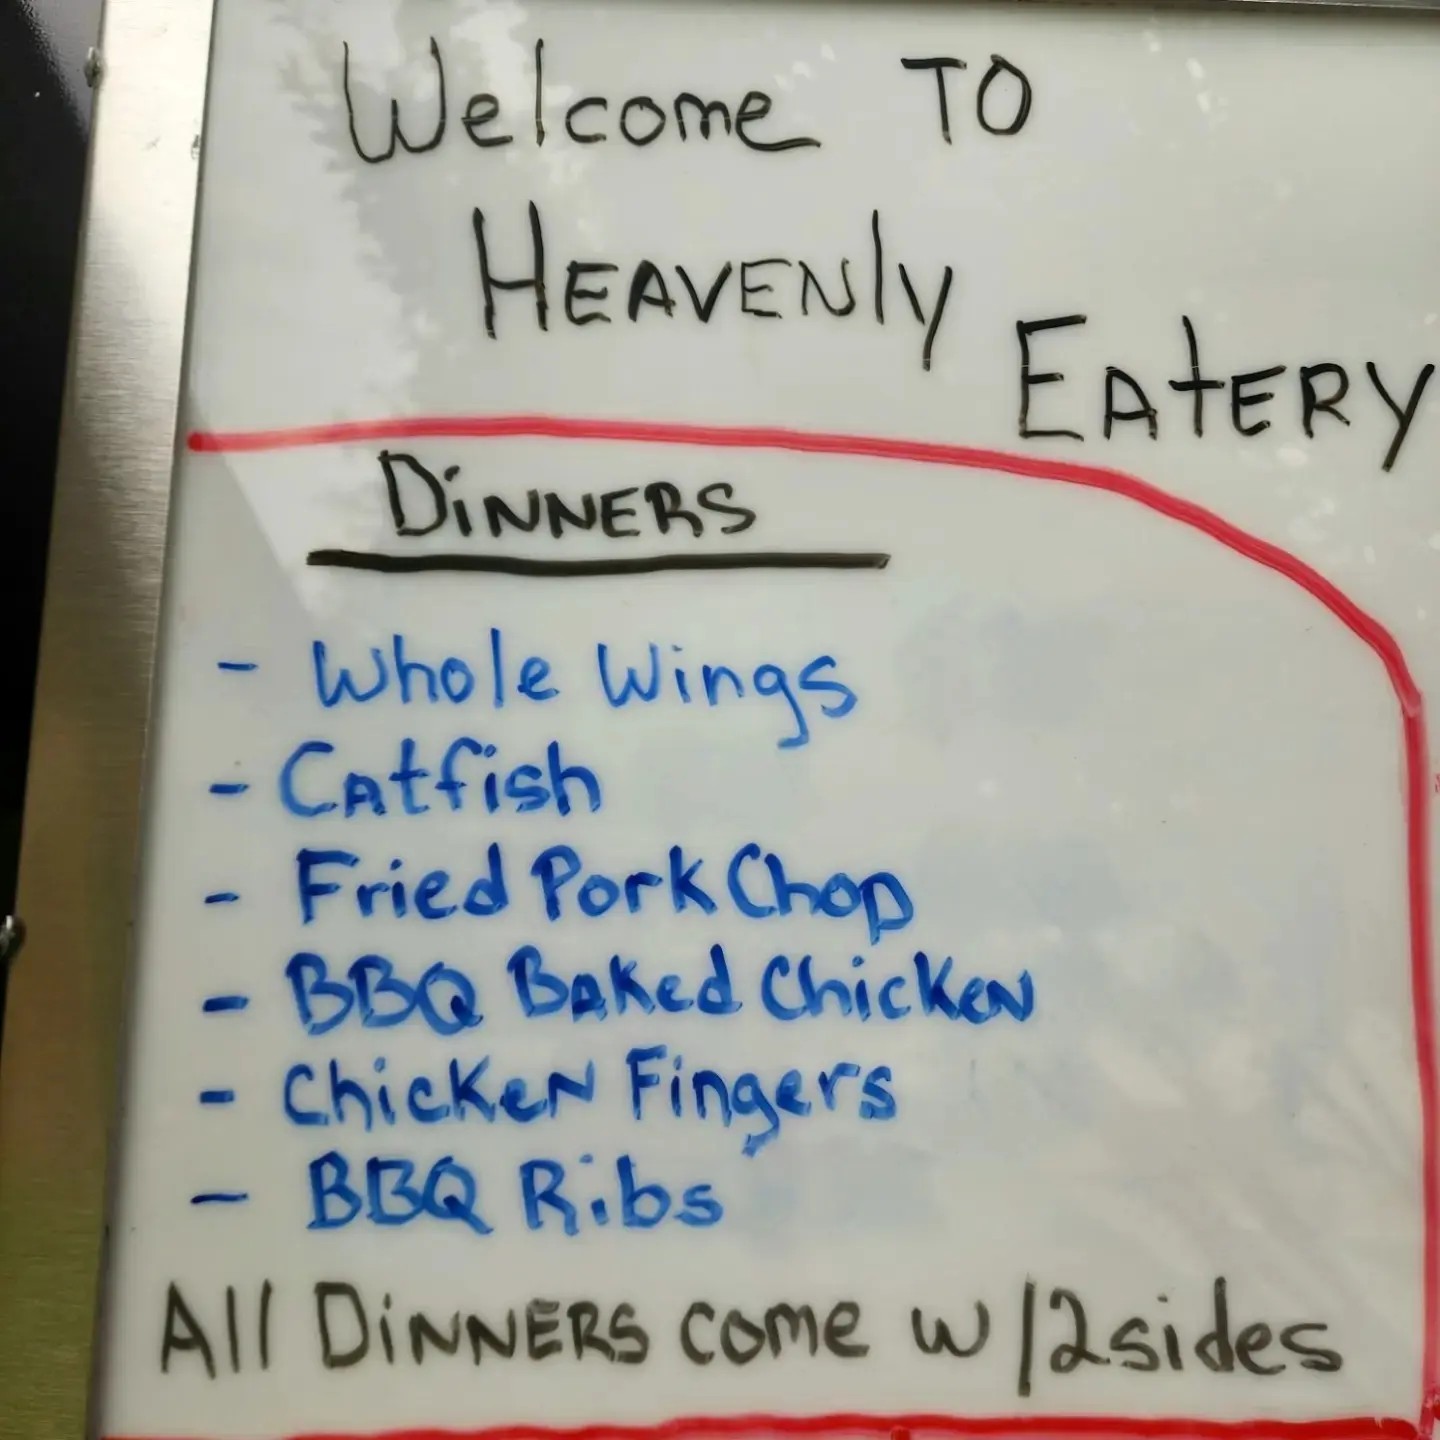 Welcome TO
HEAVENly
EAtERY
DiNNERS
- Whole Wings
- Catfish
- Fried Pork Chop
- BBQ Baked Chicken
- Chicken Fingers
- BBQ Ribs
All DiNNERS come w/2sides